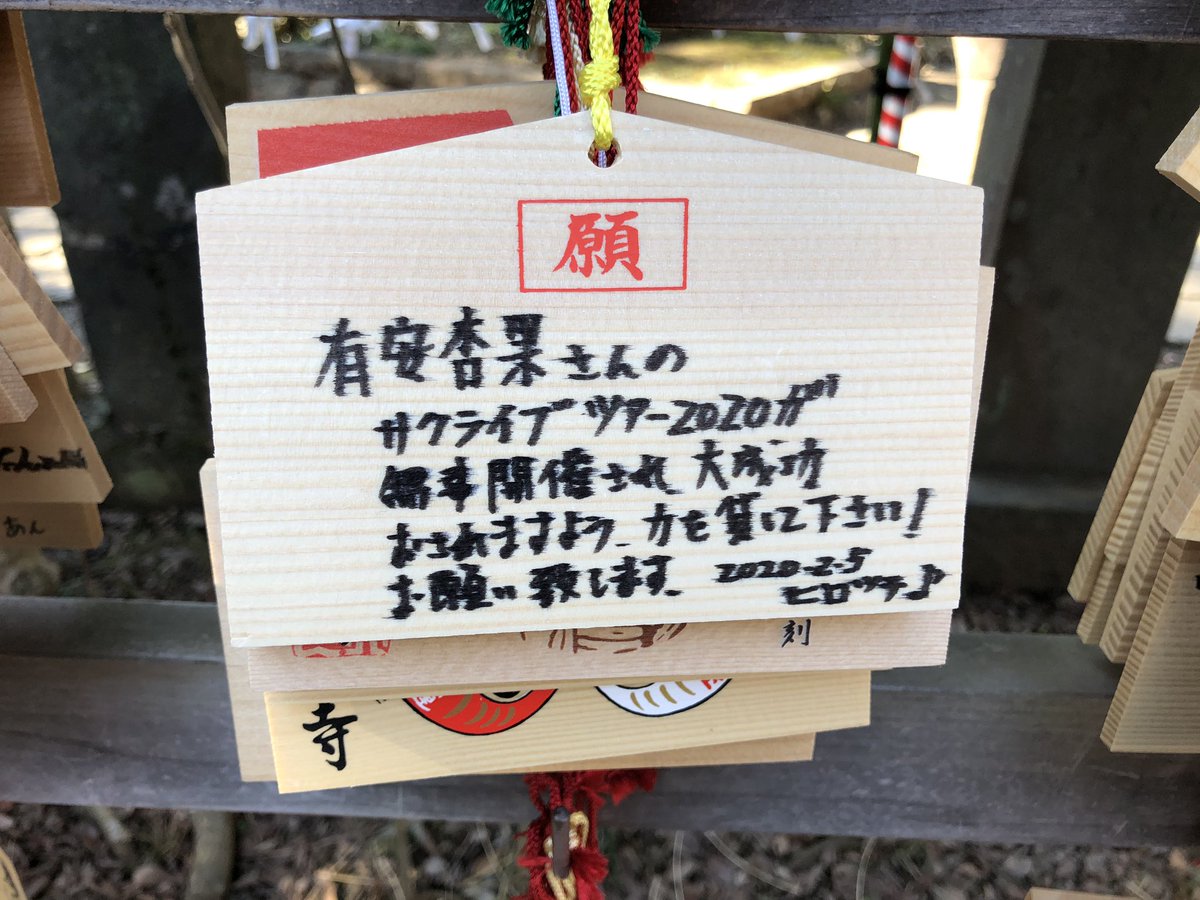 願
有安杏果さんの
サクライブ ツアー2020が
無事開催され 大成功
おさめますよう、力を貸して下さい!
お願い致します。 2020-2-5
ヒロッチ♪
刻
寺
あん